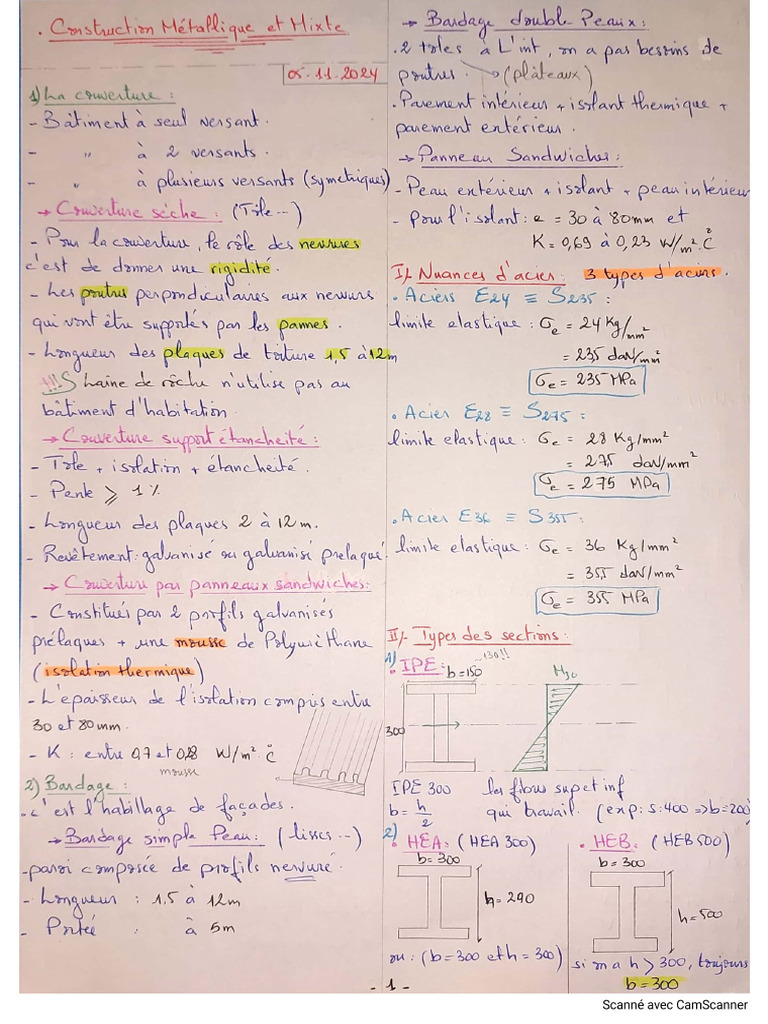 . Construction Métallique et Mixte
05.11.2024
1) La couverture :
- Bâtiment à seul versant.
- " à 2 versants.
- " à plusieurs versants (symetriques)
→ Couverture sèche : (Tôle...)
- Pour la couverture, le rôle des nervures
c'est de donner une rigidité.
- Les poutres perpondiculaires aux nervurs
qui vont être supportés par les pannes.
- Longueur des plaques de toiture 1,5 à 12m
!!!S Laine de rôche n'utilise pas au
bâtiment d'habitation.
→ Couverture support étancheité :
- Tôle + isolation + étancheité.
- Pente ⩾ 1%
- Longueur des plaques 2 à 12m.
- Revêtement : galvanisé ou galvanisé prelaqué.
→ Couverture par panneaux sandwiches:
- Constitués par 2 profils galvanisés
prélaques + une mousse de Polyuréthane
(isolation thermique)
- L'epaisseur de l'isolation compris entre
30 et 80mm.
- K : entre 0,7 et 0,28 W/m².°C
mousse
2) Bardage :
. c'est l'habillage de façades.
→ Bardage simple Peau : (lisses...)
- paroi composée de profils nervuré.
- Longueur : 1,5 à 12m
- Portée : à 5m
→ Bardage double Peaux :
. 2 toles à L'int, on a pas besoins de
poutres. → (plâteaux)
. Parement intérieur + isolant thermique +
parement extérieur.
→ Panneau Sandwiches :
- Peau extérieur + isolant + peau intérieur
- pour l'isolant : e = 30 à 80mm et
K = 0,69 à 0,23 W/m².°C
I)- Nuances d'acier : 3 types d'aciers.
. Aciers E24 ≡ S235 :
limite elastique : σe = 24 Kg/mm²
= 235 daN/mm²
σe = 235 MPa
. Acier E28 ≡ S275 :
limite elastique : σe = 28 Kg/mm²
= 27,5 daN/mm²
σe = 275 MPa
. Acier E36 ≡ S355 :
limite elastique : σe = 36 Kg/mm²
= 35,5 daN/mm²
σe = 355 MPa
II)- Types des sections :
1) . IPE : b=150 ~130!!
300
IPE 300 les flous sup et inf
b = h/2 qui travail. (exp: s:400 => b=200)
2) . HEA : (HEA 300)
b = 300
h = 290
ou : (b = 300 et h = 300)
. HEB : (HEB 500)
b = 300
h = 500
si on a h > 300, toujours
b = 300
- 1 -
Scanné avec CamScanner